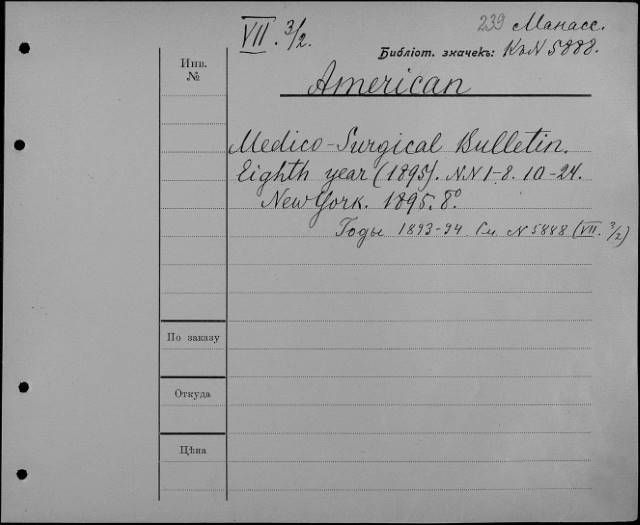 VII. 3/2.
239 Манасс.
Библіот. значекъ: КъN 5888.
Инв.
№
American
Medico-Surgical Bulletin.
Eighth year (1895). NN 1-8. 10-24.
New York. 1895. 8°.
Годы 1893-94 См. N 5888 (VII. 3/2)
По заказу
Откуда
Цѣна